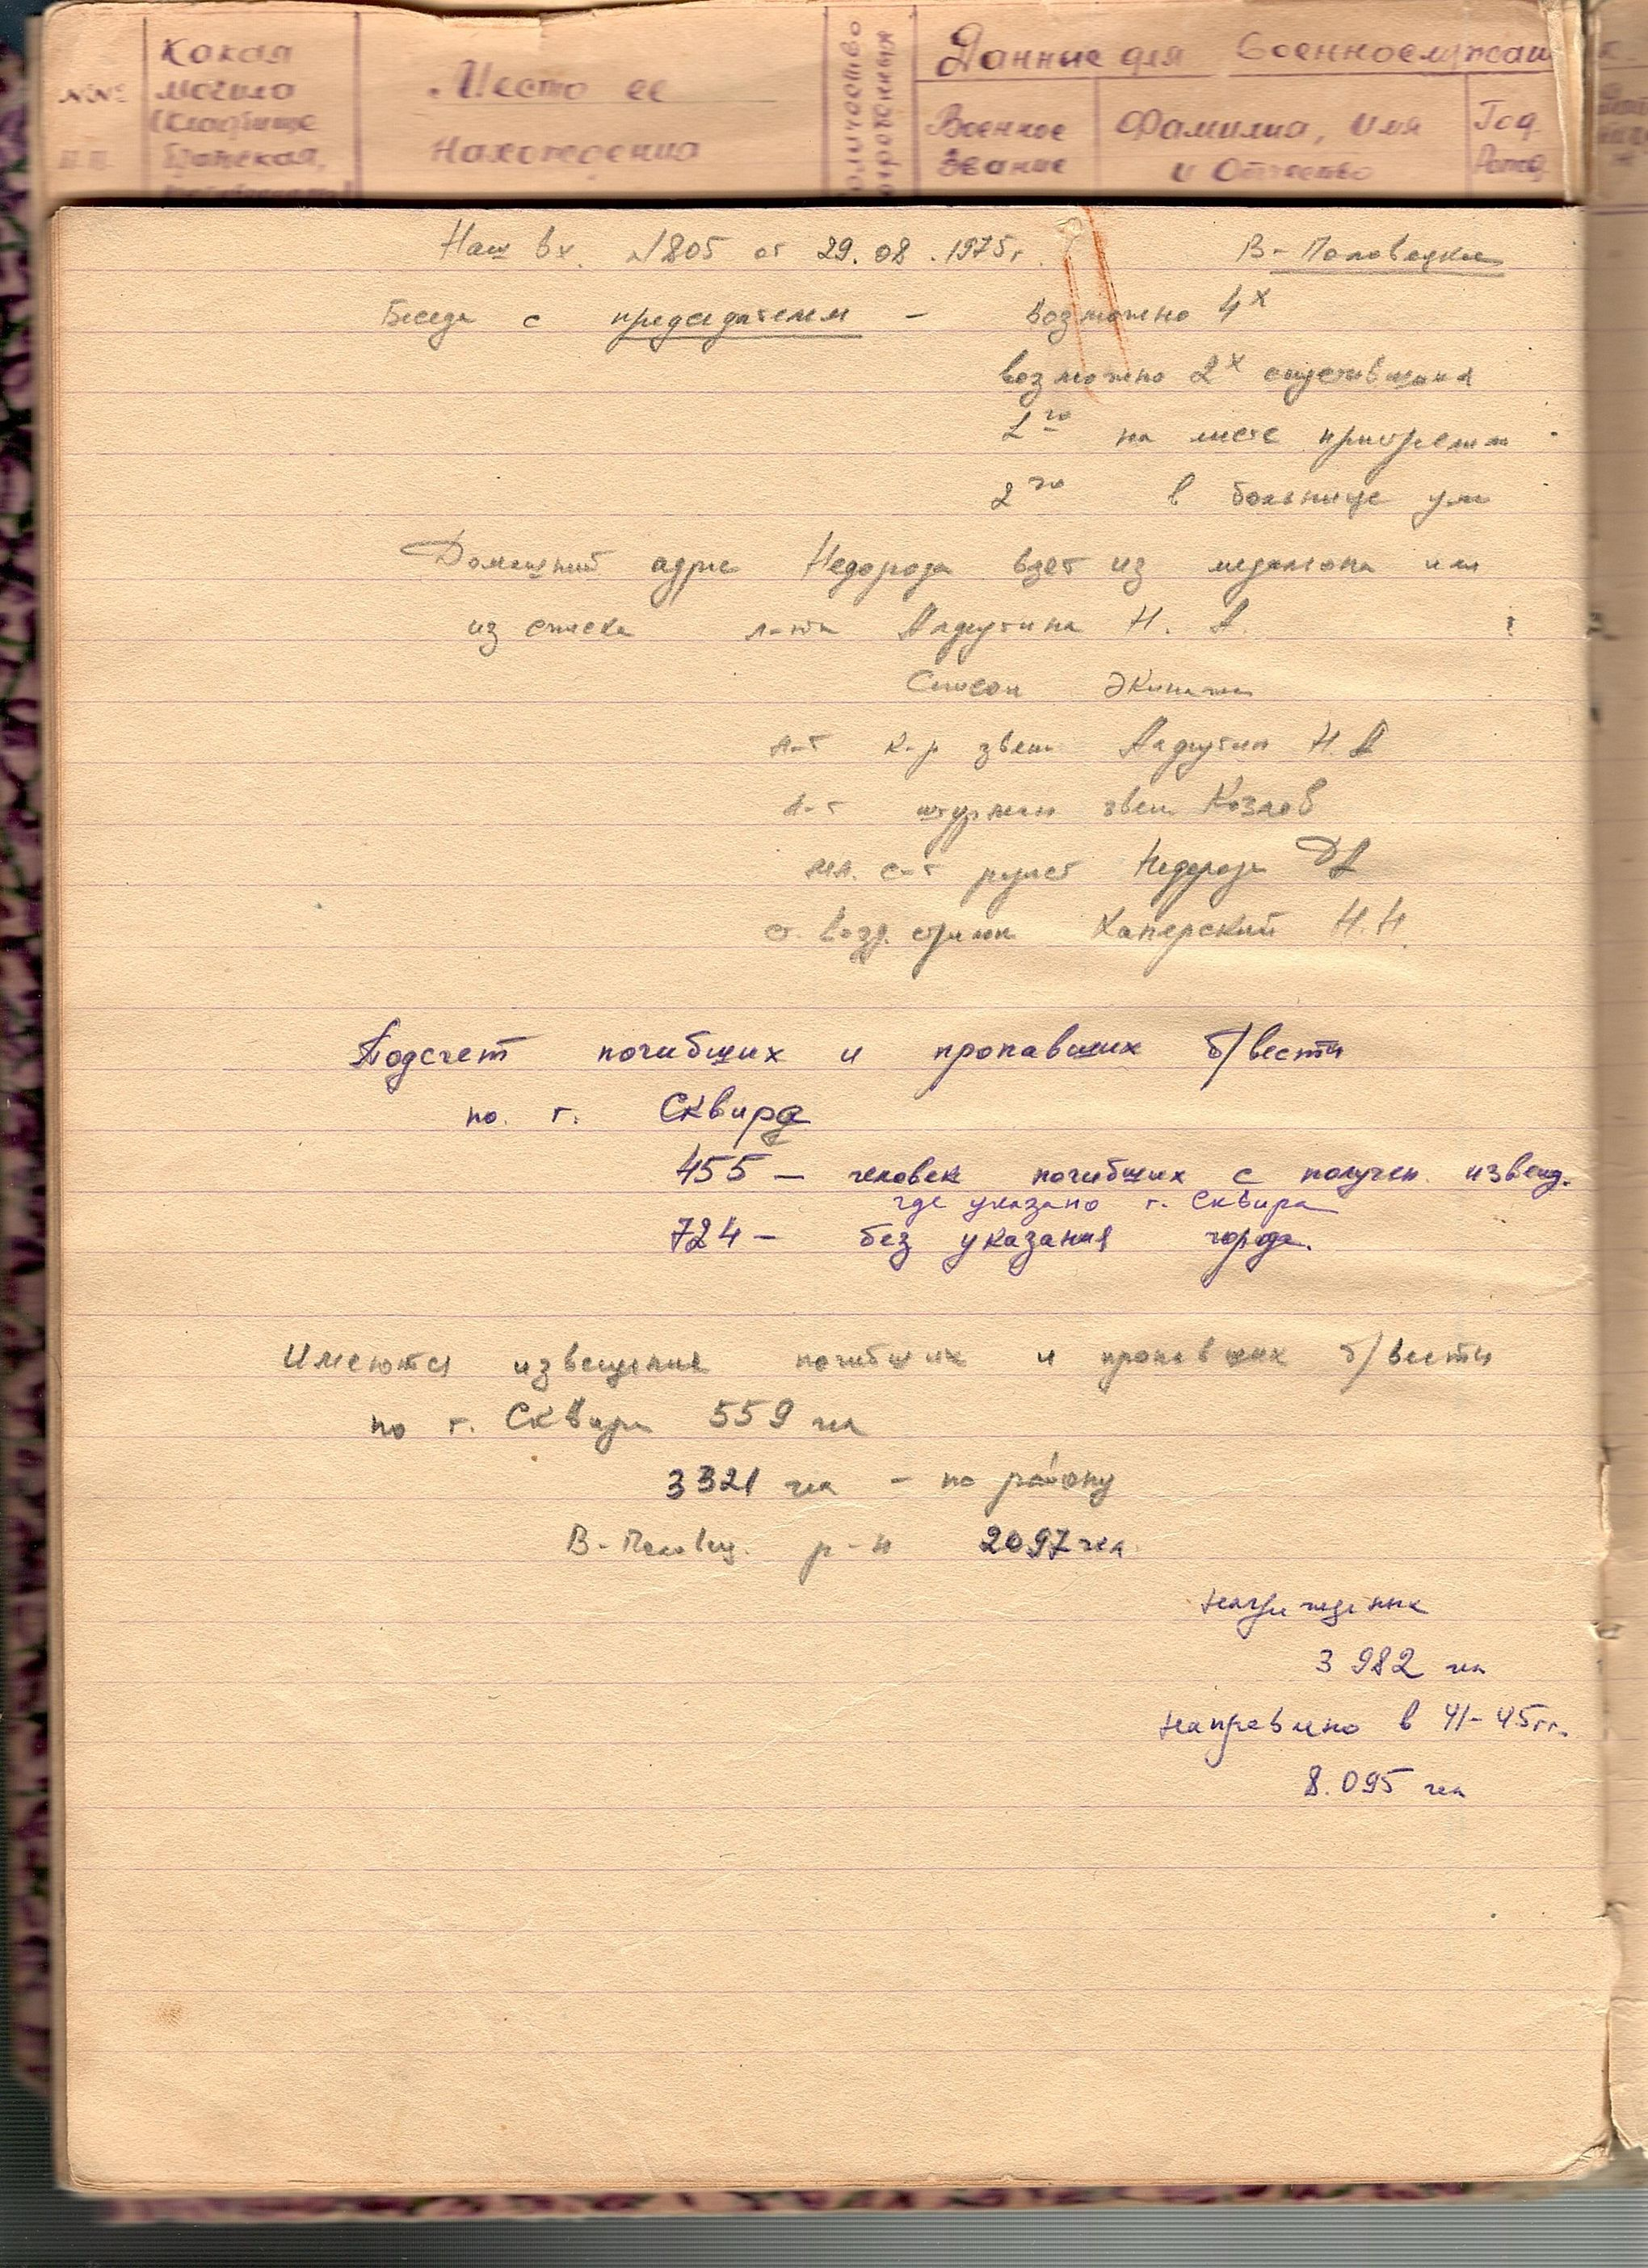 №№ п.п.
Какая
могила
(кладбище
братская,
Место ее
нахождения
Количество
Данные для военнослужащ
Военное
звание
Фамилия, Имя
и Отчество
Год
Рожд.
Наш вх. №805 от 29.08.1975г.
В-Половецкое
Беседа с председателем – возможно 4х
возможно 2х
1го на месте
2го в больнице ум
Домашний адрес Недорода взят из медалиона или
из списка л-та Ладутина Н. А.
Список экипажа
л-т к-р звена Ладутин Н. А
л-т штурман звена Козлов
мл. с-т Недорода ДА
возд. стрелок Хаперский Н.Н.
Подсчет погибших и пропавших б/вести
по г. Сквира
455 – человек погибших с получен. извещ.
где указано г. Сквира
724 – без указания города.
Имеются извещения погибших и пропавших б/вести
по г. Сквира 559 чел
3321 чел – по району
В-Половец. р-н 2097 чел.
награжденных
3 982 чел
направлено в 41-45гг.
8.095 чел